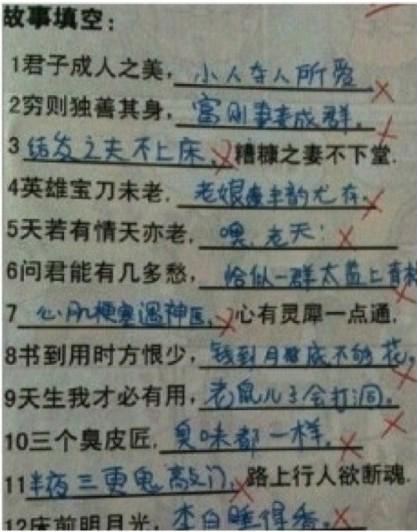 故事填空：
1君子成人之美，小人夺人所爱
2穷则独善其身，富则妻妻成群。
3结发之夫不上床，糟糠之妻不下堂.
4英雄宝刀未老，老娘丰韵尤存.
5天若有情天亦老，喂，老天！
6问君能有几多愁，恰似一群太监上青
7心肌梗塞遇神医，心有灵犀一点通，
8书到用时方恨少，钱到月底不够花，
9天生我才必有用，老鼠儿子会打洞.
10三个臭皮匠，臭味都一样.
11半夜三更鬼敲门，路上行人欲断魂.
12床前明月光，李白睡得香.